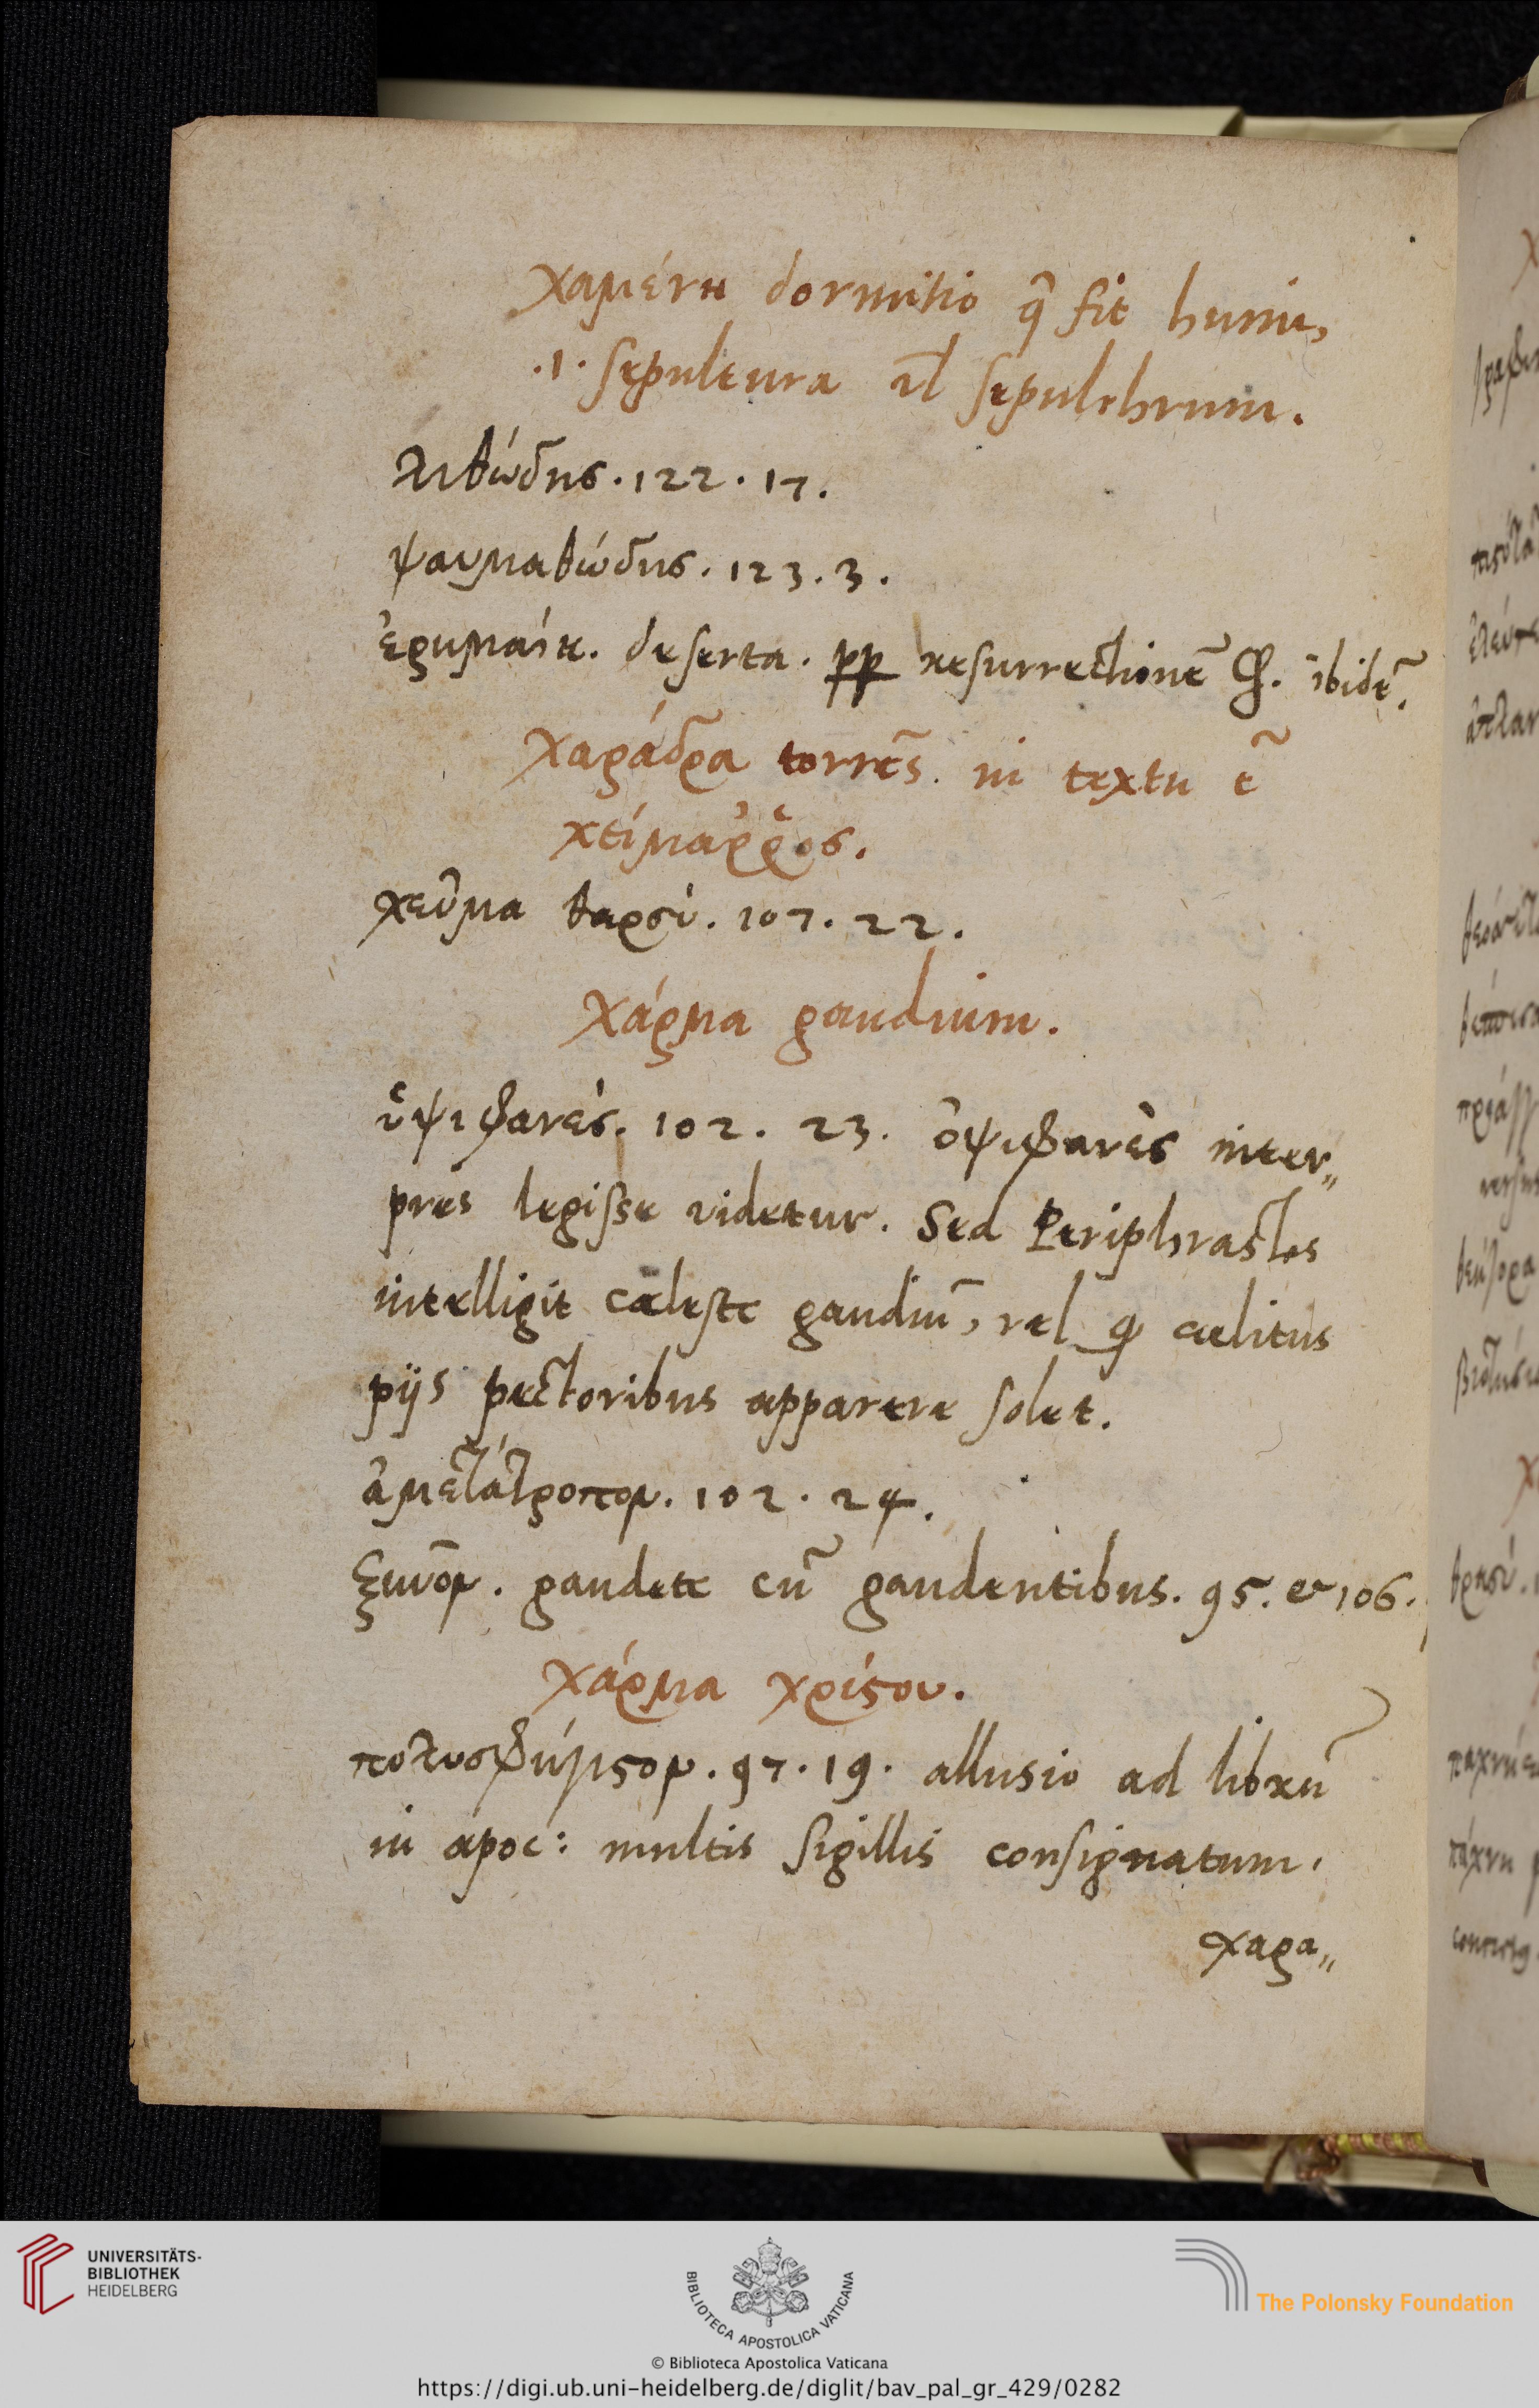 χαμεύνη dormitio q̃ fit humi,
.i. sepultura ul̃ sepulchrum.
λιθώδης. 122. 17.
ψαμμαθώδης. 123. 3.
deserta. pp resurrectionẽ ibidẽ.
χαράδρα torrẽs. in textu ẽ
χείμαρρος.
χεῦμα θαρσύ. 107. 22.
χάρμα gaudium.
ὑψιφανές. 102. 23. ὀψιφανὲς inter„
pres legisse videtur. Sed Periphrastes
intelligit cæleste gaudiũ, vel q cælitus
pijs pectoribus apparere solet.
ἀμετάτροπον. 102. 24.
ξυνὸν. gaudete cũ gaudentibus. 95. & 106.
χάρμα χρίστου.
97. 19. allusio ad librũ
in apoc: multis sigillis consignatum.
χαρα„
UNIVERSITÄTS-
BIBLIOTHEK
HEIDELBERG
BIBLIOTECA APOSTOLICA VATICANA
The Polonsky Foundation
© Biblioteca Apostolica Vaticana
https://digi.ub.uni-heidelberg.de/diglit/bav_pal_gr_429/0282